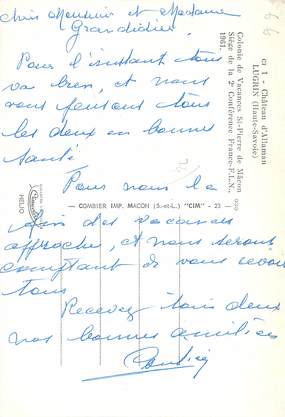 Chers Monsieur et Madame
Grandidier
Pour l'instant tous
va bien, et nous
vous pensons tous
les deux en bonnes
santé
Pour nous la
fin des vacances
approche, et nous serons
comptant de vous revoir
tous
Recevez tous deux
nos bonnes amitiés
CI 1 - Château d'Allaman
LUGRIN (Haute-Savoie)
Colonie de Vacances St-Pierre de Mâcon
Siège de la 2e Conférence Franco-F.L.N.,
1961.
COMBIER IMP. MACON (S.-et-L.) "CIM"
HELIO